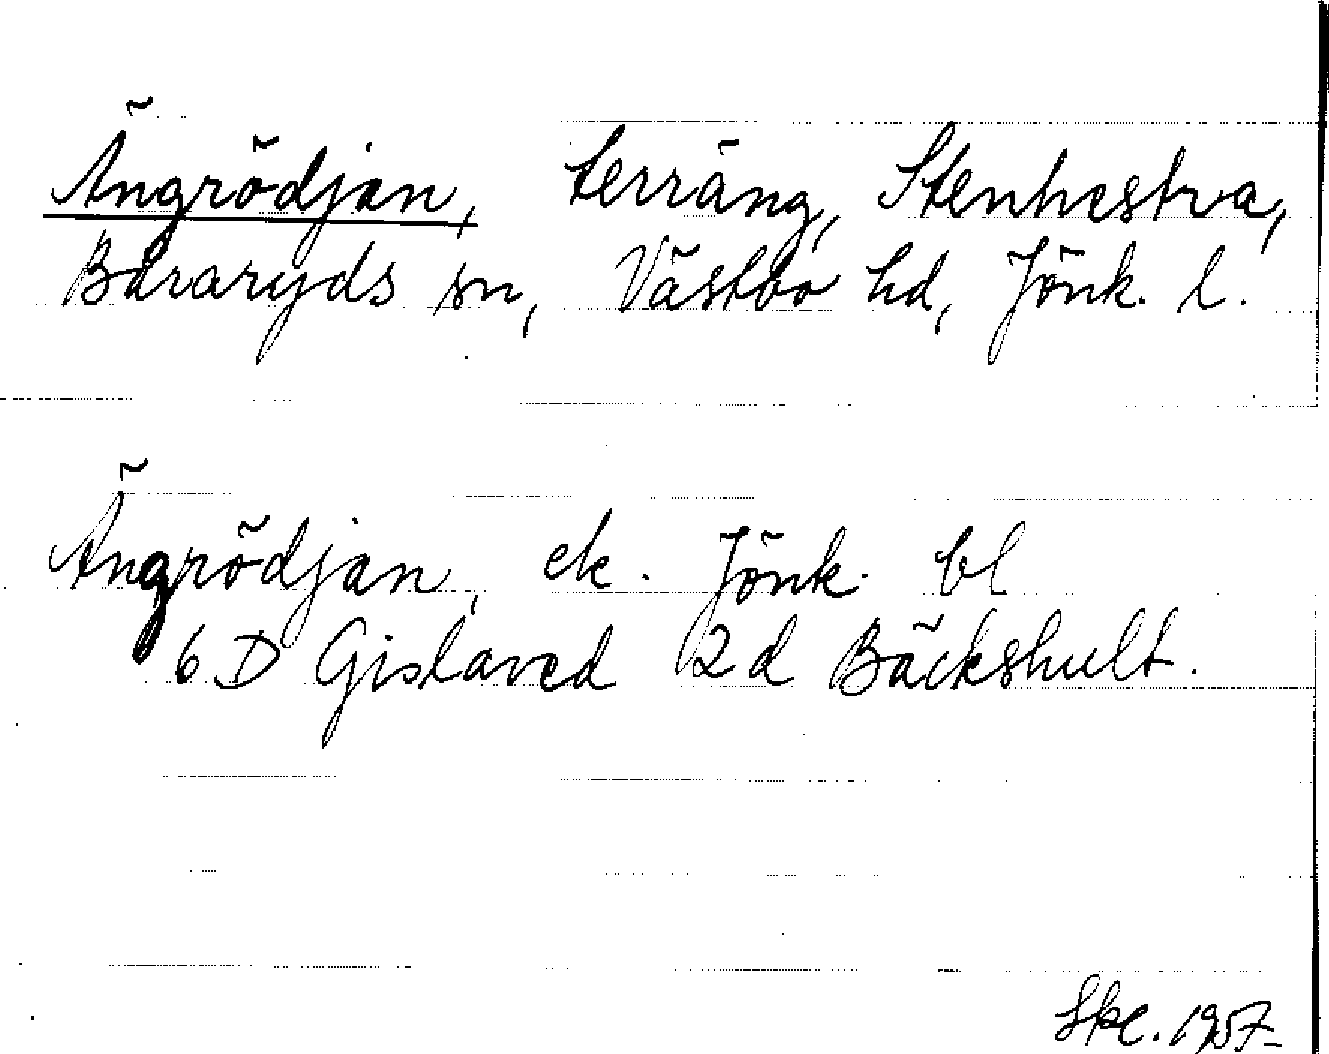 Ängrödjan, terräng, Stenhestra,
Båraryds sn, Västbo hd, Jönk. l.
Ängrödjan, ek. Jönk. bl
6 D Gislaved 2d Bäckshult.
1957